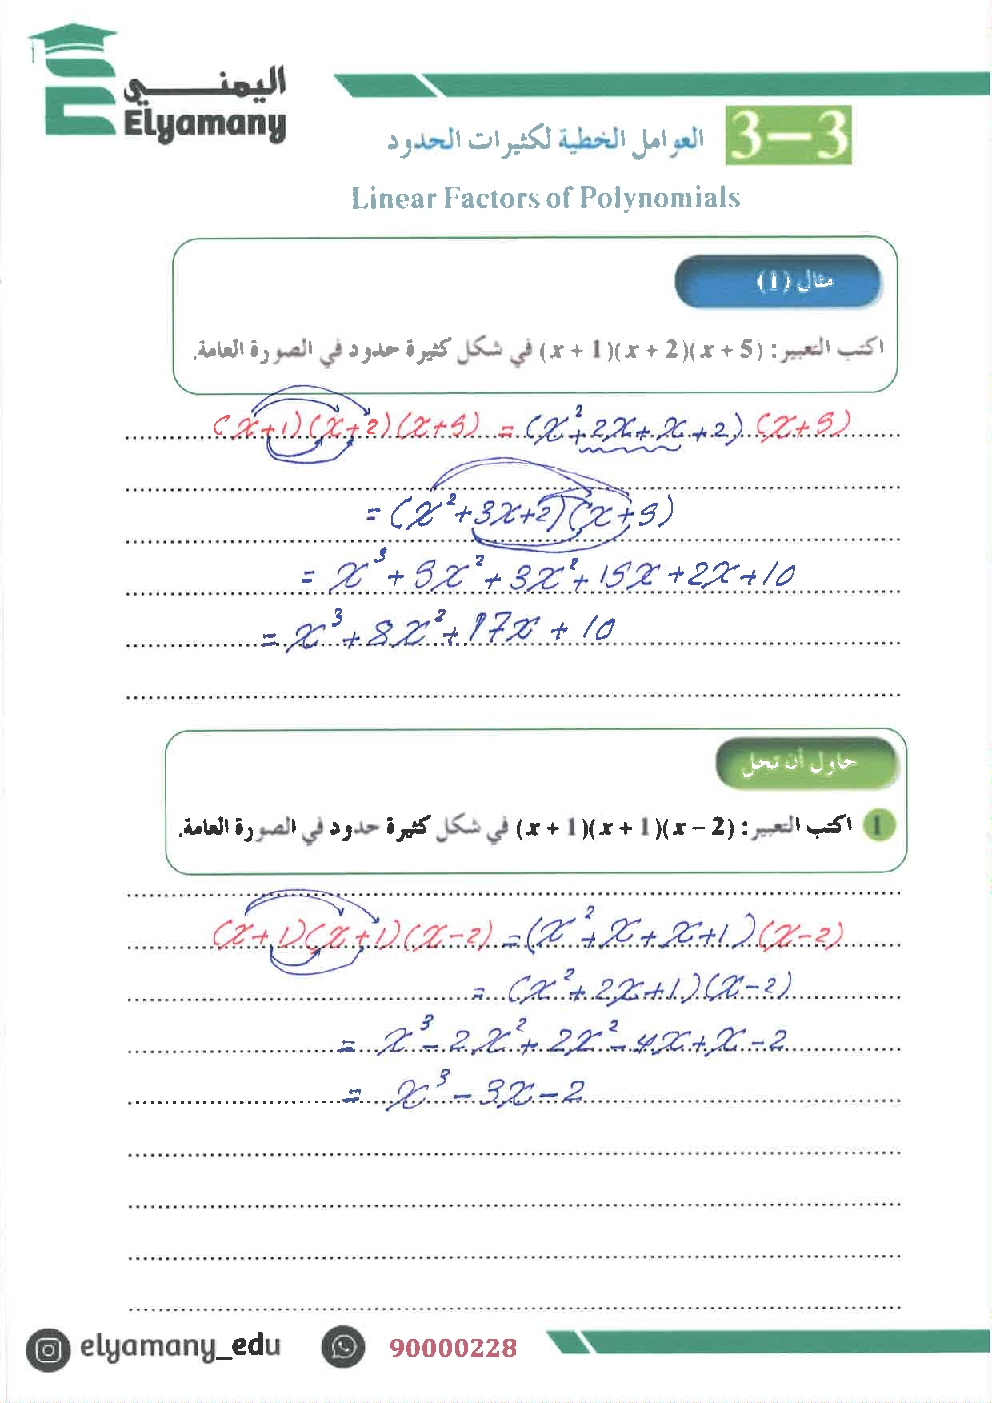 اليمني
Elyamany
3-3 العوامل الخطية لكثيرات الحدود
Linear Factors of Polynomials
مثال (1)
اكتب التعبير: (x + 1)(x + 2)(x + 5) في شكل كثيرة حدود في الصورة العامة.
(x+1)(x+2)(x+5) = (x²+2x+x+2)(x+5)
= (x²+3x+2)(x+5)
= x³+5x²+3x²+15x+2x+10
= x³+8x²+17x+10
حاول أن تحل
1 اكتب التعبير: (x + 1)(x + 1)(x − 2) في شكل كثيرة حدود في الصورة العامة.
(x+1)(x+1)(x-2) = (x²+x+x+1)(x-2)
= (x²+2x+1)(x-2)
= x³-2x²+2x²-4x+x-2
= x³-3x-2
elyamany_edu 90000228